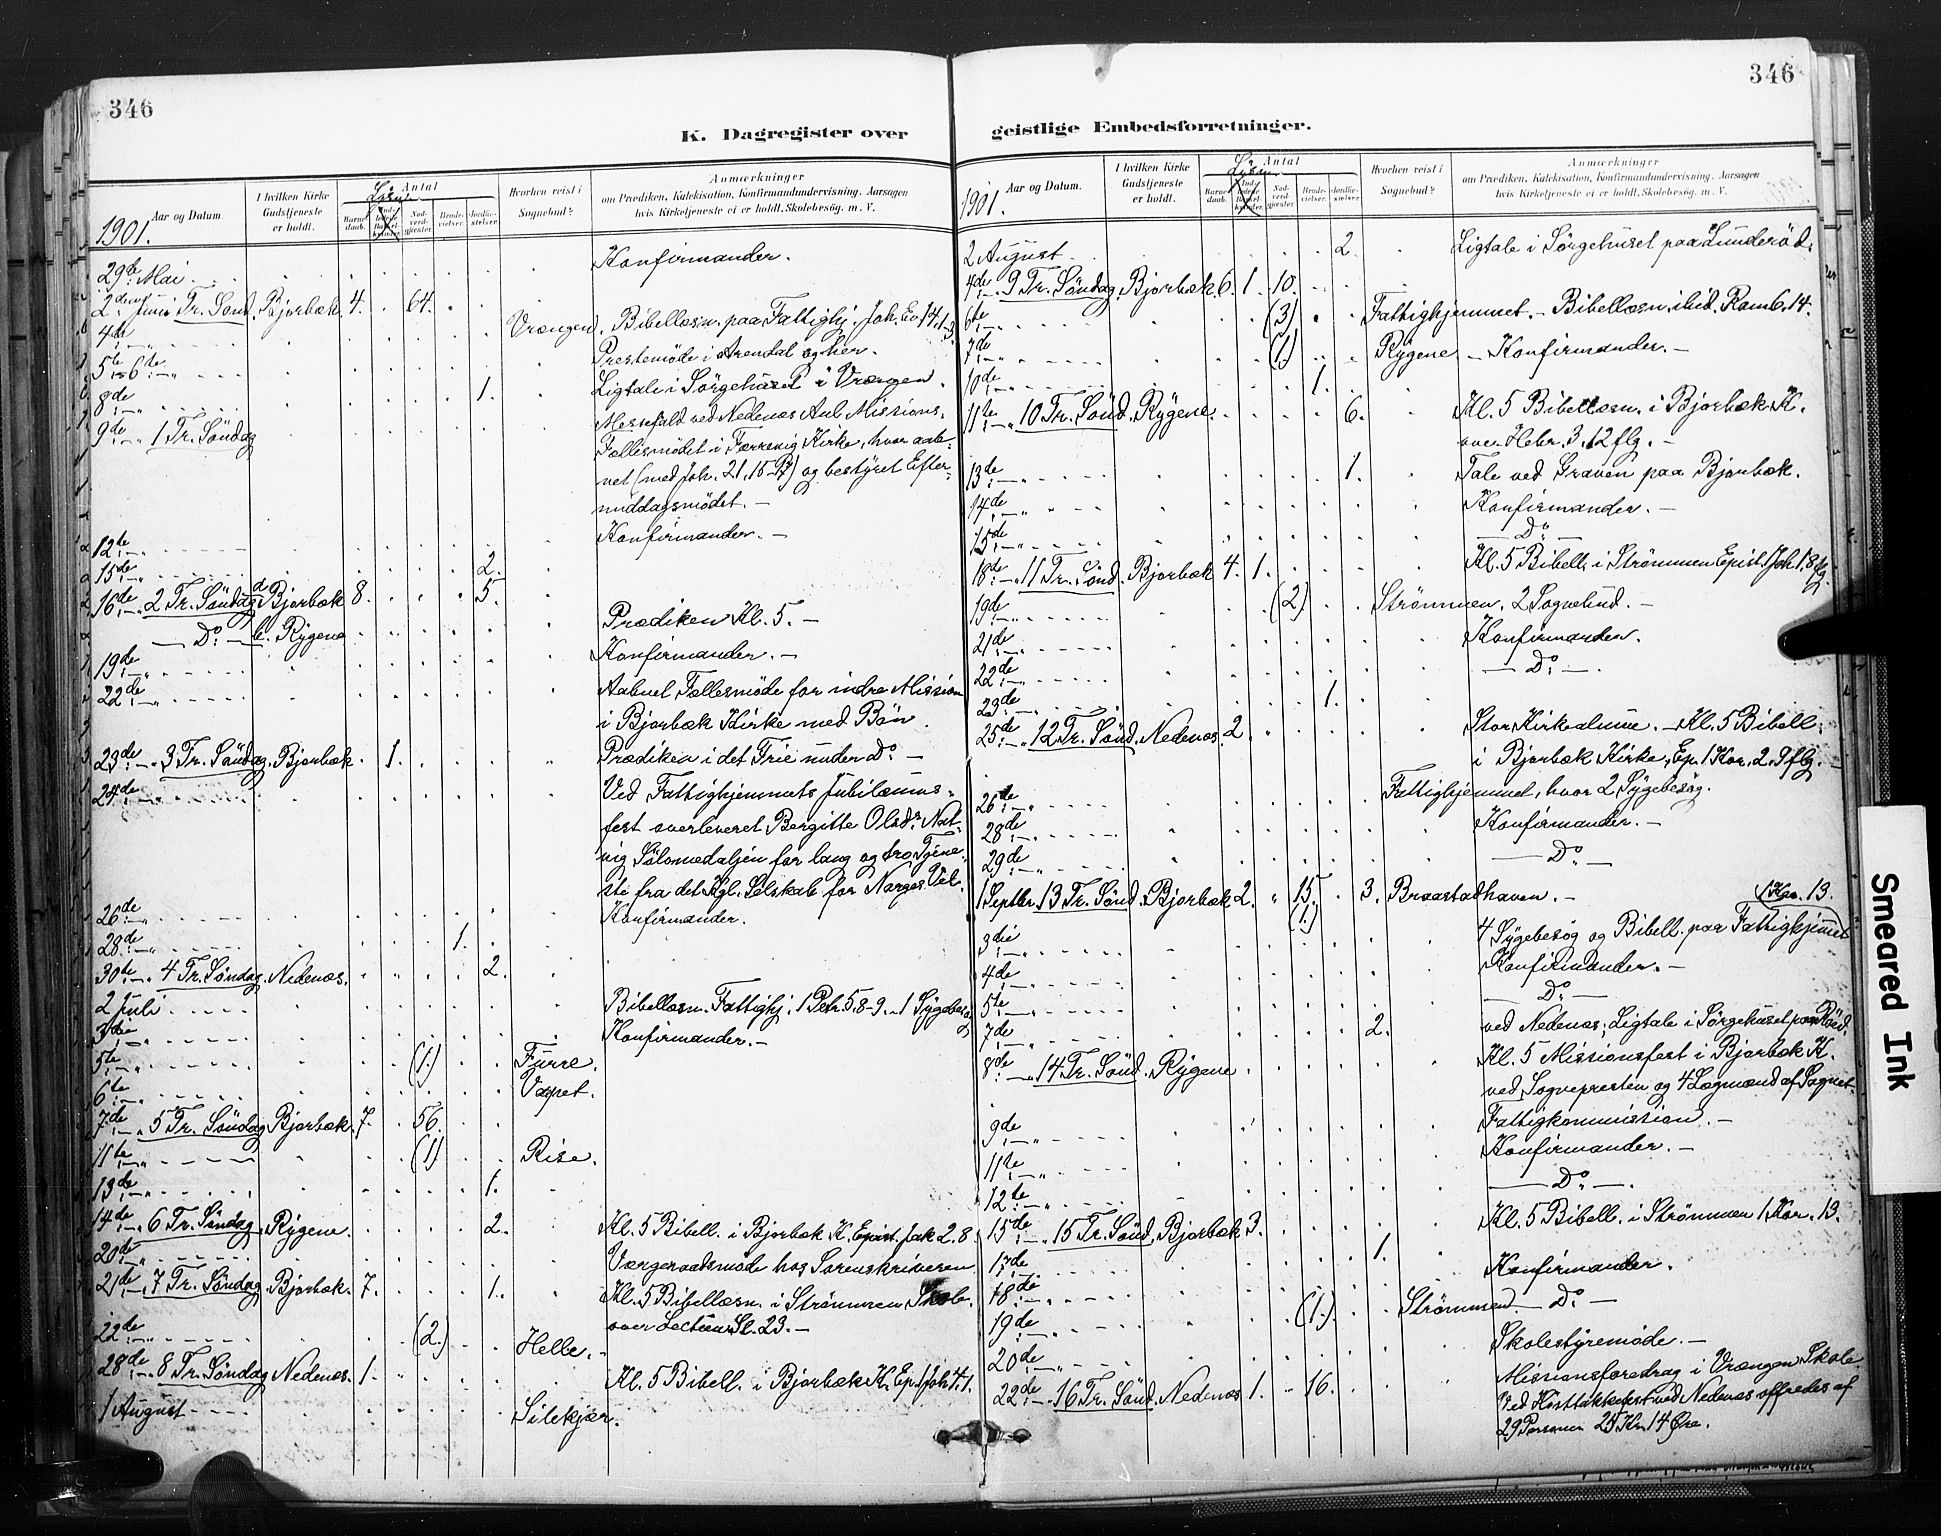 346
K. Dagregister over
Aar og Datum.
I hvilken Kirke Gudstjeneste er holdt.
Antal
Barnedaab.
Nadverdgjester.
Brudevielser.
Jordfæstelser.
Hvorhen reist i Sognebud?
Anmærkninger
om Prædiken, Katekisation, Konfirmandundervisning. Aarsagen
hvis Kirketjeneste ei er holdt. Skolebesøg. m. V.
1901.
29de Mai Konfirmander.
2den Juni Tr. Sönd. Bjorbæk 4. 64.
4de Vrængen. Bibellæsn. paa Fattighj. Joh. Ev. 14.1-3
5te 6te Prestemöde i Arendal og her.
8de 1. Ligtale i Sörgehuset i Vrængen.
9de 1 Tr. Söndag Messefald ved Nedenæs Missions-
Fællesmödet i Færevig Kirke, hvor aab-
net (med Joh. 21.15-17) og bestyret Efter-
middagsmödet. —
12te Konfirmander. —
15de 2.
16de 2 Tr. Söndag Bjorbæk 8. 5.
— Do — Rygene Prædiken Kl. 5. —
19de Konfirmander. —
22de Aabnet Fællesmöde for indre Mission
i Bjorbæk Kirke med Bön.
23de 3 Tr. Söndag. Bjorbæk. 1. Prædiken i det Frie under Do —
24de Ved Fattighjemmets Jubilæums-
fest overleveret Bergitte Olsdr. Nat-
vig Sölvmedaljen for lang og tro Tjene-
ste fra det Kgl. Selskab for Norges Vel.
26de Konfirmander.
28de 1.
30de 4 Tr. Söndag. Nedenæs. 2.
2 Juli Bibellæsn. Fattighj. 1 Petr. 5.8-9. 1 Sygebesög
3die Konfirmander. —
5te (1.) Furre.
6te
7de 5 Tr. Söndag Bjorbæk. 7. 56.
11te (1) Rise.
13de 1.
14de 6 Tr. Söndag Rygene. 2. Kl. 5 Bibell. i Bjorbæk K. Epist. Jak 2.8
20de Værgeraadsmöde hos Sorenskriveren
21de 7 Tr. Söndag Bjorbæk. 7. 1. Kl. 5 Bibellæsn. i Strömmen Skole
22de (2.) Helle.
28de 8 Tr. Söndag Nedenæs. 1. Kl. 5 Bibell. i Bjorbæk K. Ep. 1 Joh. 4.1.
1 August Silekjær.
346
geistlige Embedsforretninger.
Aar og Datum.
I hvilken Kirke Gudstjeneste er holdt.
Antal
Barnedaab.
Nadverdgjester.
Brudevielser.
Jordfæstelser.
Hvorhen reist i Sognebud?
Anmærkninger
om Prædiken, Katekisation, Konfirmandundervisning. Aarsagen
hvis Kirketjeneste ei er holdt. Skolebesøg. m. V.
1901.
2 August 2 Ligtale i Sörgehuset paa Lunderöd.
4de 9 Tr. Söndag Bjorbæk 6. 1. 10.
6te (3) Fattighjemmet. — Bibellæsn. ibid. Rom 6.14.
7de (1.) Rygene — Konfirmander. —
10de 1.
11te 10 Tr. Sönd. Rygene. 6. Kl. 5 Bibellæsn. i Bjorbæk K.
over Hebr. 3.12 flg. —
13de 1. Tale ved Graven paa Bjorbæk.
14de Konfirmander. —
15de — Do —
18de 11 Tr. Sönd. Bjorbæk 4. 1. Kl. 5 Bibell. i Strömmen Epist. 1 Joh. 1.8 flg
19de (2) Strömmen. 2 Sognebud. —
21de Konfirmander.
22de — Do —
23de 1.
25de 12 Tr. Sönd. Nedenæs. 2. Stor Kirkealmue. — Kl. 5 Bibell.
i Bjorbæk Kirke, Ep. 1 Kor. 2.9 flg. —
26de Fattighjemmet, hvor 2 Sygebesög.
28de Konfirmander. —
29de — Do —
1 Septbr. 13 Tr. Sönd. Bjorbæk 2. 15. (1.) 3. Braastadhaven. —
1 Kor. 13.
3die 4 Sygebesög og Bibell. paa Fattighjemmet
4de Konfirmander. —
5te — Do —
7de 2. ved Nedenæs; Ligtale i Sörgehuset paa
8de 14 Tr. Sönd. Rygene Kl. 5 Missionsfest i Bjorbæk K.
ved Sognepresten og 4 Lægmænd af Sognet.
9de Fattigkommission. —
11te Konfirmander. —
12te — Do —
15de 15 Tr. Sönd. Bjorbæk 3. Kl. 5 Bibell. i Strömmen 1 Kor. 13.
17de 1.
18de Konfirmander.
19de (1.) Strömmen. — Do —
20de Skolestyremöde. —
Missionsforedrag i Vrængen Skole
22de 16 Tr. Sönd. Nedenæs 1. 16. Ved Hösttakkefest ved Nedenæs offredes af
29 Personer 25 Kr. 14 Øre.
Smeared Ink